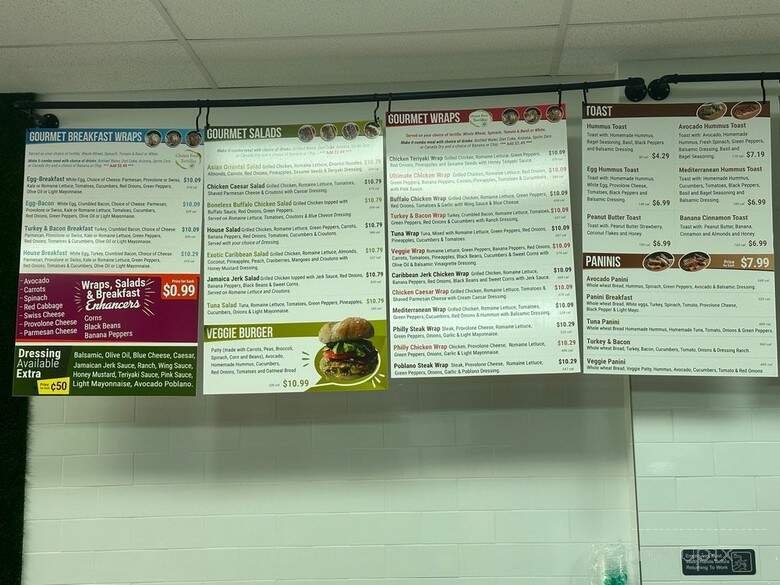 GOURMET BREAKFAST WRAPS
Served on your choice of tortilla: Wheat, Spinach, Tomato or Wheat or White.
Egg-Breakfast White Egg, Choice of Cheese: Parmesan, Provolone or Swiss, $10.09
Kale or Romaine Lettuce, Tomatoes, Cucumbers, Red Onions, Green Peppers,
Olive Oil or Light Mayonnaise.
Egg-Bacon White Egg, Crumbled Bacon, Choice of Cheese: Parmesan, $10.09
Provolone or Swiss, Kale or Romaine Lettuce, Tomatoes, Cucumbers,
Red Onions, Green Peppers, Olive Oil or Light Mayonnaise.
Turkey & Bacon Breakfast Turkey, Crumbled Bacon, Choice of Cheese: $10.09
Parmesan, Provolone or Swiss, Kale or Romaine Lettuce, Green Peppers,
Red Onions, Tomatoes & Cucumbers, Olive Oil or Light Mayonnaise.
House Breakfast White Egg, Turkey, Crumbled Bacon, Choice of Cheese: $10.29
Parmesan, Provolone or Swiss, Kale or Romaine Lettuce, Green Peppers,
Red Onions, Tomatoes & Cucumbers, Olive Oil or Light Mayonnaise.
- Avocado
- Carrots
- Spinach
- Red Cabbage
- Swiss Cheese
- Provolone Cheese
- Parmesan Cheese
Wraps, Salads
& Breakfast
Enhancers
Corns
Black Beans
Banana Peppers
Price for Each
$0.99
Dressing
Available
Extra
¢50
Balsamic, Olive Oil, Blue Cheese, Caesar,
Jamaican Jerk Sauce, Ranch, Wing Sauce,
Honey Mustard, Teriyaki Sauce, Pink Sauce,
Light Mayonnaise, Avocado Poblano.
GOURMET SALADS
Asian Oriental Salad Grilled Chicken, Romaine Lettuce, Oriental Noodles, $10.79
Almonds, Carrot, Red Onions, Pineapples, Sesame Seeds & Teriyaki Dressing.
Chicken Caesar Salad Grilled Chicken, Romaine Lettuce, Tomatoes, $10.79
Shaved Parmesan Cheese & Croutons with Caesar Dressing.
Boneless Buffalo Chicken Salad Grilled Chicken topped with $10.79
Buffalo Sauce, Red Onions, Green Peppers.
Served on Romaine Lettuce, Tomatoes, Croutons & Blue Cheese Dressing
House Salad Grilled Chicken, Romaine Lettuce, Green Peppers, Carrots, $10.79
Banana Peppers, Red Onions, Tomatoes, Cucumbers & Croutons
Served with your choice of Dressing.
Exotic Caribbean Salad Grilled Chicken, Romaine Lettuce, Almonds, $10.79
Coconut, Pineapples, Peach, Cranberries, Mangoes and Croutons with
Honey Mustard Dressing.
Jamaica Jerk Salad Grilled Chicken topped with Jerk Sauce, Red Onions, $10.79
Banana Peppers, Black Beans & Sweet Corns.
Served on Romaine Lettuce and Croutons
Tuna Salad Tuna, Romaine Lettuce, Tomatoes, Green Peppers, Pineapples, $10.79
Cucumbers, Onions & Light Mayonnaise.
VEGGIE BURGER
Patty (made with Carrots, Peas, Broccoli,
Spinach, Corn and Beans), Avocado,
Homemade Hummus, Cucumbers,
Red Onions, Tomatoes and Oatmeal Bread
$10.99
GOURMET WRAPS
Served on your choice of tortilla: Whole Wheat, Spinach, Tomato & Basil or White.
Chicken Teriyaki Wrap Grilled Chicken, Romaine Lettuce, Green Peppers, $10.09
Red Onions, Pineapples and Sesame Seeds with Honey Teriyaki Sauce.
Ultimate Chicken Wrap Grilled Chicken, Romaine Lettuce, Red Onions, $10.09
Green Peppers, Banana Peppers, Carrots, Pineapples, Tomatoes & Cucumbers
with Pink Sauce.
Buffalo Chicken Wrap Grilled Chicken, Romaine Lettuce, Green Peppers, $10.09
Red Onions, Tomatoes & Garlic with Wing Sauce & Blue Cheese.
Turkey & Bacon Wrap Turkey, Crumbled Bacon, Romaine Lettuce, Tomatoes, $10.09
Green Peppers, Red Onions & Cucumbers with Ranch Dressing.
Tuna Wrap Tuna, Mixed with Romaine Lettuce, Green Peppers, Red Onions, $10.09
Pineapples, Cucumbers & Tomatoes.
Veggie Wrap Romaine Lettuce, Green Peppers, Banana Peppers, Red Onions, $10.09
Carrots, Tomatoes, Pineapples, Black Beans, Cucumbers & Sweet Corns with
Olive Oil & Balsamic Vinaigrette Dressing.
Caribbean Jerk Chicken Wrap Grilled Chicken, Romaine Lettuce, $10.09
Banana Peppers, Red Onions, Black Beans & Sweet Corns with Jerk Sauce.
Chicken Caesar Wrap Grilled Chicken, Romaine Lettuce, Tomatoes & $10.09
Shaved Parmesan Cheese with Cream Caesar Dressing.
Mediterranean Wrap Grilled Chicken, Romaine Lettuce, Tomatoes, $10.09
Green Peppers, Cucumbers, Red Onions & Hummus with Balsamic Dressing.
Philly Steak Wrap Steak, Provolone Cheese, Romaine Lettuce, $10.29
Green Peppers, Onions, Garlic & Light Mayonnaise.
Philly Chicken Wrap Chicken, Provolone Cheese, Romaine Lettuce, $10.29
Green Peppers, Onions, Garlic & Light Mayonnaise.
Poblano Steak Wrap Steak, Provolone Cheese, Romaine Lettuce, $10.29
Green Peppers, Onions, Garlic & Poblano Dressing.
TOAST
Hummus Toast
Toast with: Homemade Hummus,
Bagel Seasoning, Basil, Black Peppers
and Balsamic Dressing.
$4.29
Egg Hummus Toast
Toast with: Homemade Hummus,
White Egg, Provolone Cheese,
Tomatoes, Black Peppers and
Balsamic Dressing.
$6.99
Peanut Butter Toast
Toast with: Peanut Butter Strawberry,
Coconut Flakes and Honey
$6.99
Avocado Hummus Toast
Toast with: Avocado, Homemade
Hummus, Fresh Spinach, Green Peppers,
Balsamic Dressing, Basil and
Bagel Seasoning.
$7.19
Mediterranean Hummus Toast
Toast with: Homemade Hummus,
Cucumbers, Tomatoes, Black Peppers,
Basil and Bagel Seasoning and
Balsamic Dressing.
$6.99
Banana Cinnamon Toast
Toast with: Peanut Butter, Banana,
Cinnamon and Almonds and Honey
$6.99
PANINIS
Price for Each $7.99
Avocado Panini
Whole wheat Bread, Hummus, Spinach, Green Peppers, Avocado & Balsamic Dressing.
Panini Breakfast
Whole wheat Bread, White eggs, Turkey, Spinach, Tomato, Provolone Cheese,
Black Pepper & Light Mayo.
Tuna Panini
Whole wheat Bread Homemade Hummus, Homemade Tuna, Tomato, Onions & Green Peppers.
Turkey & Bacon
Whole wheat Bread, Turkey, Bacon, Cucumbers, Tomato, Onions & Dressing Ranch.
Veggie Panini
Whole wheat Bread, Veggie Patty, Hummus, Avocado, Cucumbers, Tomato & Red Onions
Employees Must
Wash Hands Before
Returning To Work